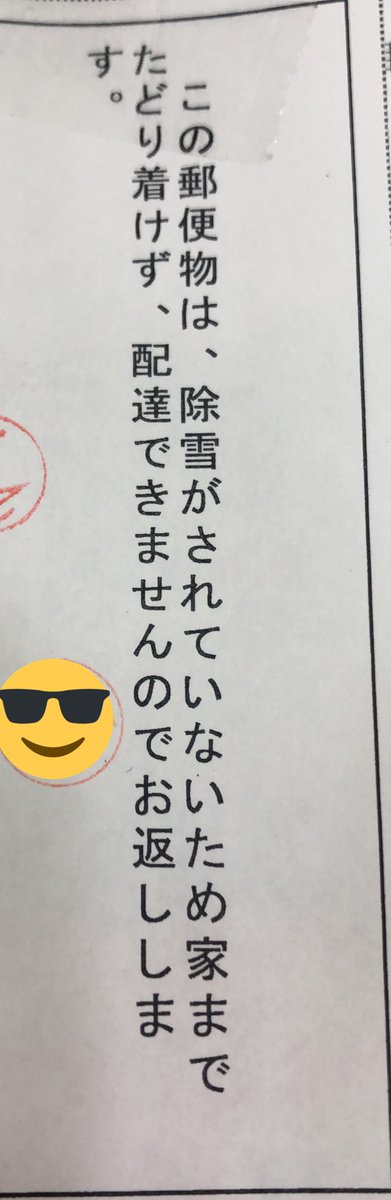 この郵便物は、除雪がされていないため家まで
たどり着けず、配達できませんのでお返ししま
す。